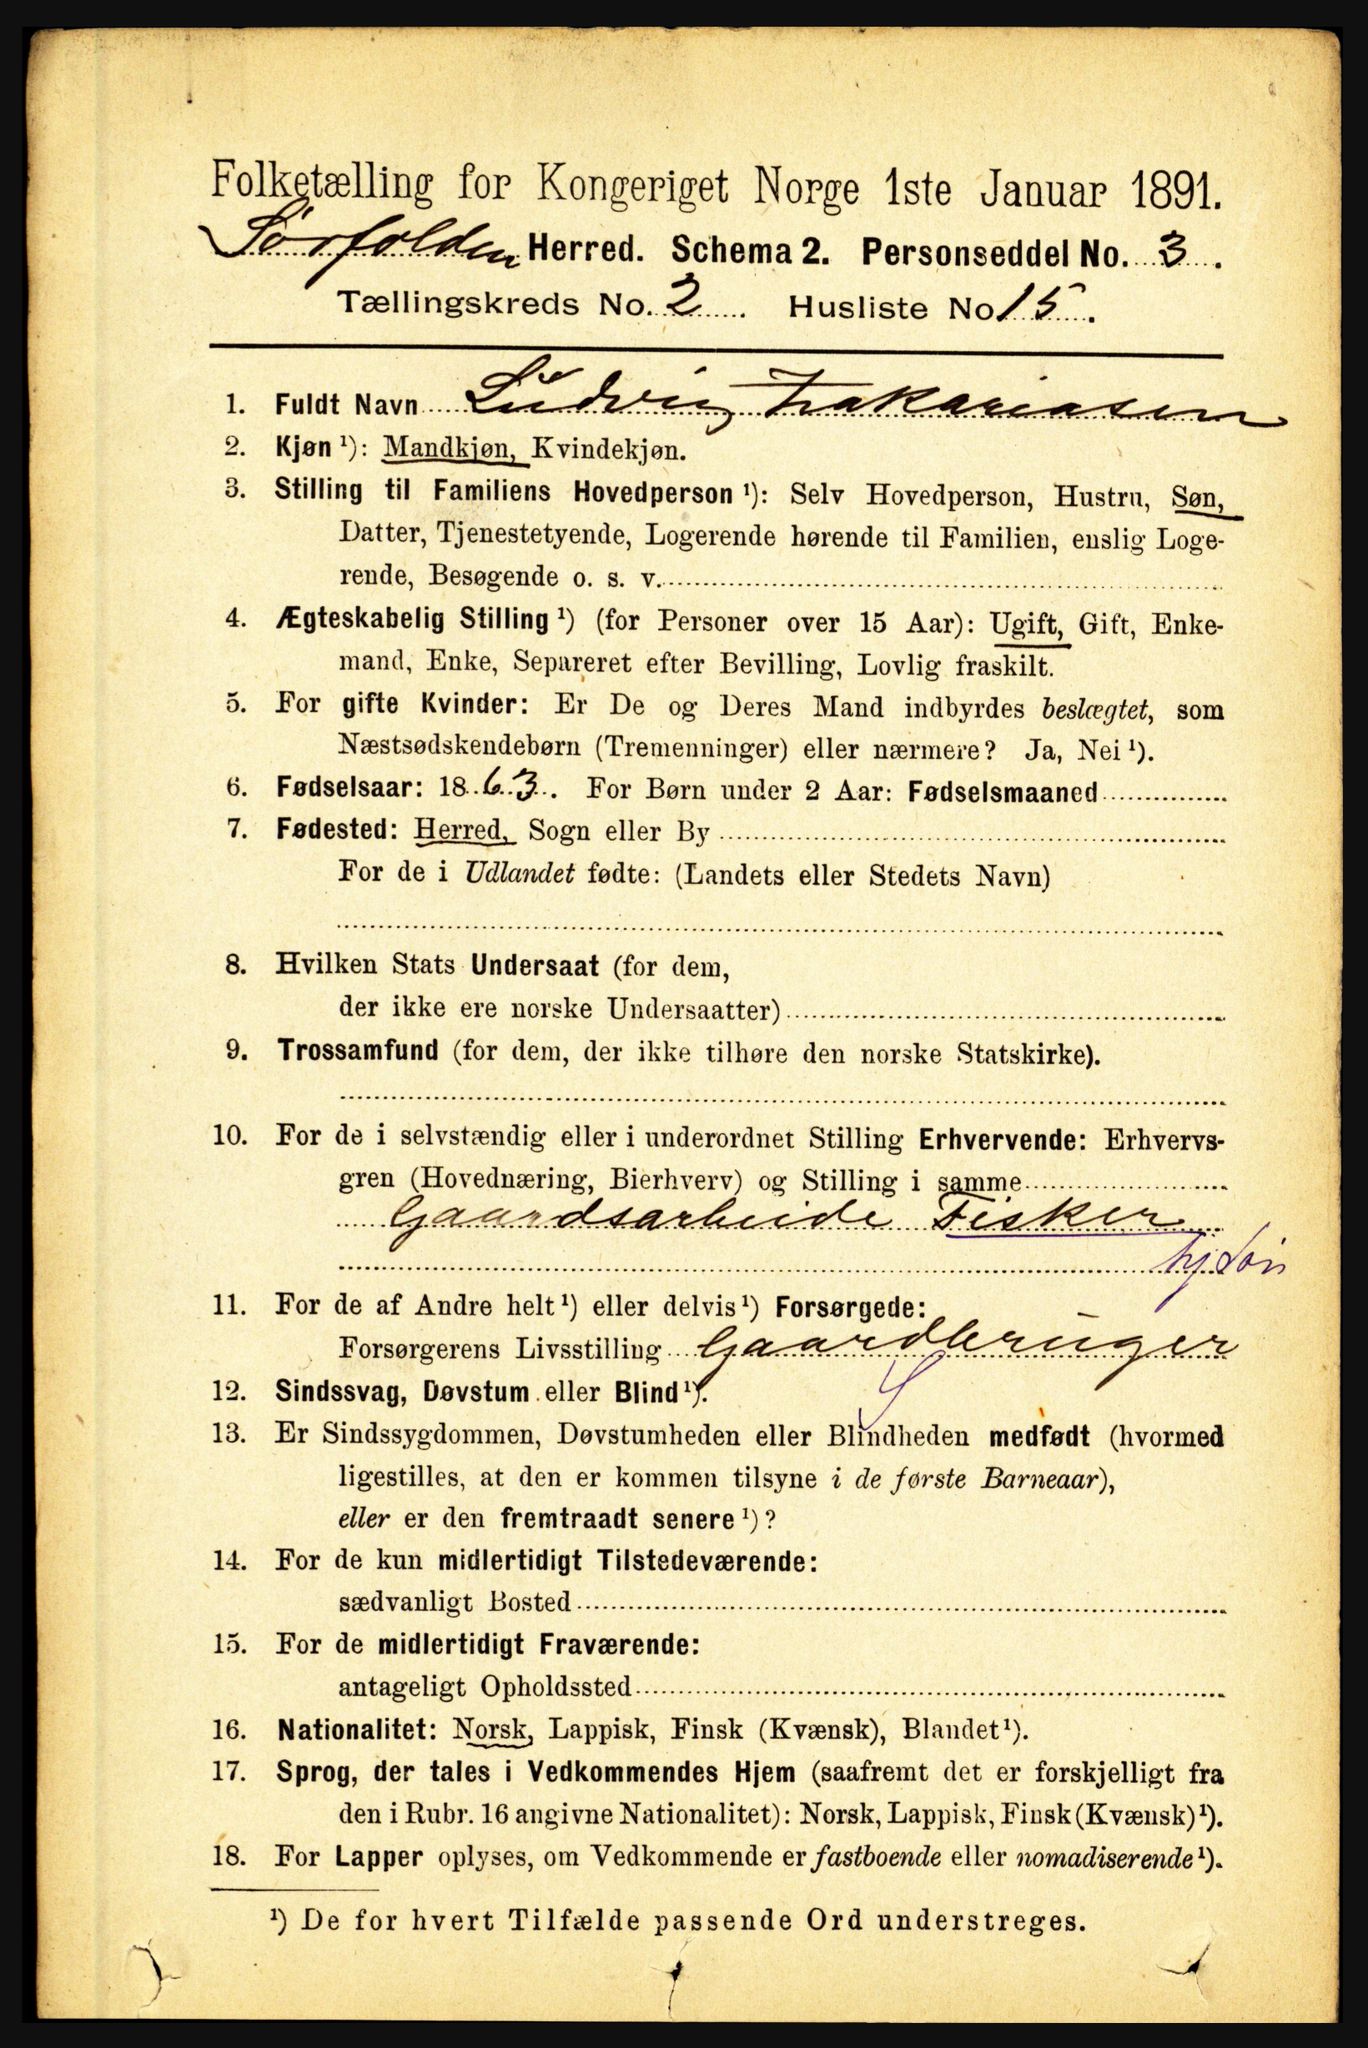 Folketælling for Kongeriget Norge 1ste Januar 1891.
Sørfolden Herred. Schema 2. Personseddel No. 3.
Tællingskreds No. 2. Husliste No 15.
1. Fuldt Navn Ludvig Zakariasen
2. Kjøn ¹): Mandkjøn, Kvindekjøn.
3. Stilling til Familiens Hovedperson ¹): Selv Hovedperson, Hustru, Søn,
Datter, Tjenestetyende, Logerende hørende til Familien, enslig Loge-
rende, Besøgende o. s. v.
4. Ægteskabelig Stilling ¹) (for Personer over 15 Aar): Ugift, Gift, Enke-
mand, Enke, Separeret efter Bevilling, Lovlig fraskilt.
5. For gifte Kvinder: Er De og Deres Mand indbyrdes beslægtet, som
Næstsødskendebørn (Tremenninger) eller nærmere? Ja, Nei ¹).
6. Fødselsaar: 1863. For Børn under 2 Aar: Fødselsmaaned
7. Fødested: Herred, Sogn eller By
For de i Udlandet fødte: (Landets eller Stedets Navn)
8. Hvilken Stats Undersaat (for dem,
der ikke ere norske Undersaatter)
9. Trossamfund (for dem, der ikke tilhøre den norske Statskirke).
10. For de i selvstændig eller i underordnet Stilling Erhvervende: Erhvervs-
gren (Hovednæring, Bierhverv) og Stilling i samme
Gaardsarbeide Fisker
hj. Søn
11. For de af Andre helt ¹) eller delvis ¹) Forsørgede:
Forsørgerens Livsstilling Gaardbruger
S
12. Sindssvag, Døvstum eller Blind ¹).
13. Er Sindssygdommen, Døvstumheden eller Blindheden medfødt (hvormed
ligestilles, at den er kommen tilsyne i de første Barneaar),
eller er den fremtraadt senere ¹)?
14. For de kun midlertidigt Tilstedeværende:
sædvanligt Bosted
15. For de midlertidigt Fraværende:
antageligt Opholdssted
16. Nationalitet: Norsk, Lappisk, Finsk (Kvænsk), Blandet ¹).
17. Sprog, der tales i Vedkommendes Hjem (saafremt det er forskjelligt fra
den i Rubr. 16 angivne Nationalitet): Norsk, Lappisk, Finsk (Kvænsk) ¹).
18. For Lapper oplyses, om Vedkommende er fastboende eller nomadiserende ¹).
¹) De for hvert Tilfælde passende Ord understreges.